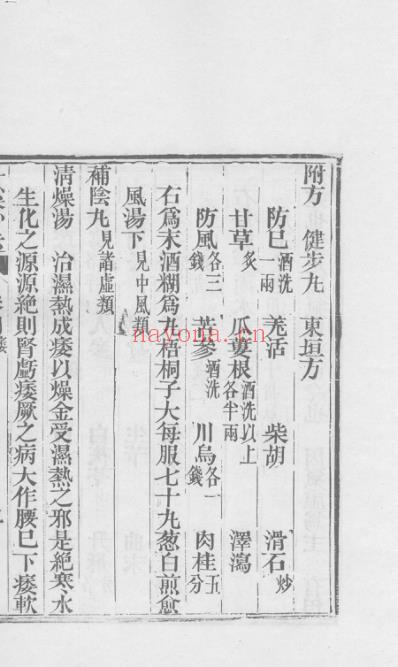 附方 健步丸 東垣方
防巳酒洗一兩 羗活 柴胡 滑石炒
甘草炙 瓜蔞根酒洗以上各半兩 澤瀉
防風各三錢 苦參酒洗 川烏各一錢 肉桂五分
右爲末酒糊爲丸梧桐子大每服七十丸葱白煎愈
風湯下見中風類
補陰丸見諸虛類
清燥湯 治濕熱成痿以燥金受濕熱之邪是絕寒水
生化之源源絕則腎虧痿厥之病大作腰巳下痿軟
nayona.cn